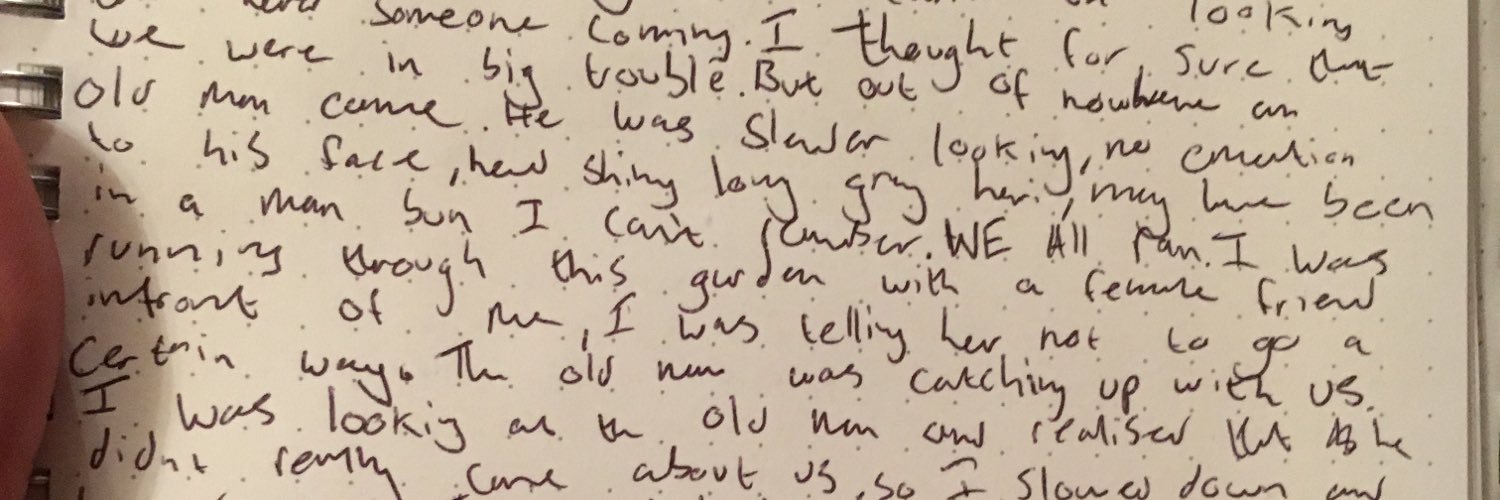 someone coming. I thought for sure that looking
we were in big trouble. But out of nowhere an
old man came. He was slender looking, no emotion
to his face, head shiny long gray hair, may have been
in a man bun I can't remember. WE All ran. I was
running through this garden with a female friend
infront of me, I was telling her not to go a
certain way. The old man was catching up with us.
I was looking at the old man and realised that he
didn't really care about us, so I slowed down and